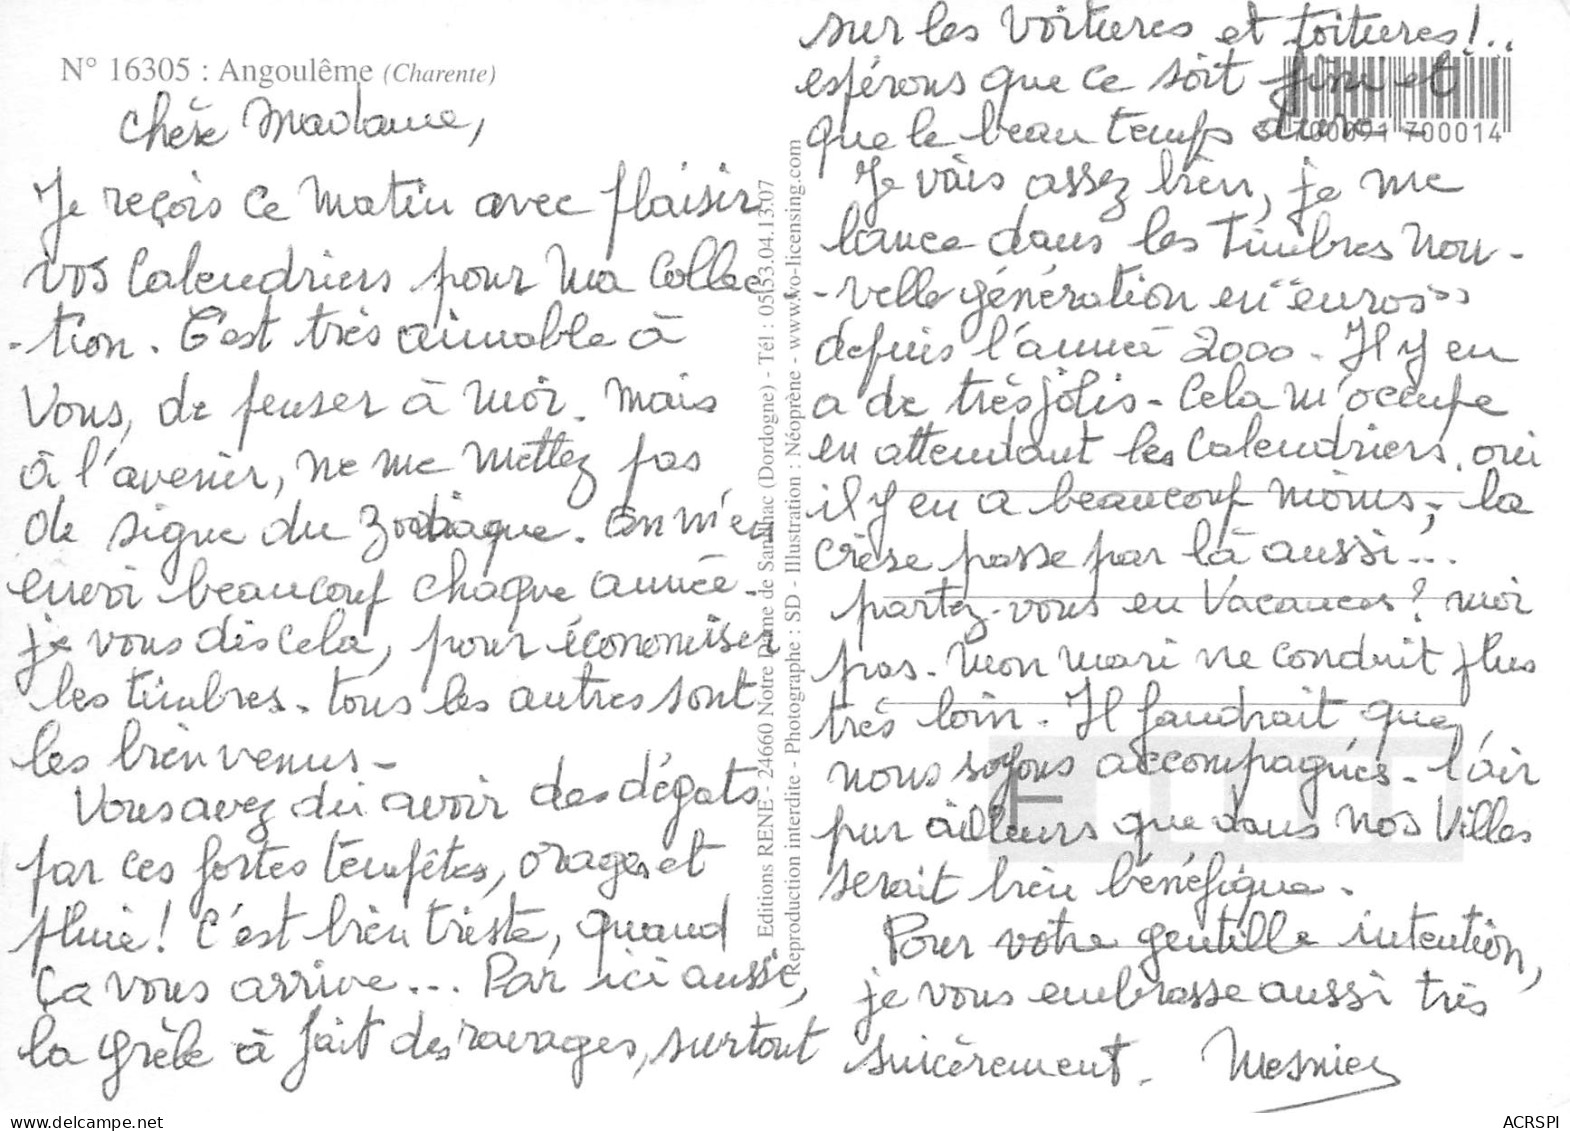 N° 16305 : Angoulême (Charente)
Chère Madame,
Je reçois ce matin avec plaisir
vos Calendriers pour ma Collec
-tion. C'est très aimable à
Vous, de penser à moi. Mais
à l'avenir, ne me mettez pas
de signe du Zodiaque. On m'en
envoi beaucoup chaque année.
je vous dis cela, pour économiser
les timbres. tous les autres sont
les bien venus -
Vous avez dû avoir des dégats
par ces fortes tempêtes, orages et
pluie! C'est bien triste, quand
ça vous arrive... Par ici aussi,
la grêle à fait des ravages, surtout
sur les voitures et toitures!..
espérons que ce soit fini et
que le beau temps dure -
Je vais assez bien, je me
lance dans les Timbres Nou-
-velle génération en "euros"
depuis l'année 2000 - Il y en
a de très jolis - Cela m'occupe
en attendant les Calendriers, oui
il y en a beaucoup moins, la
crise passe par là aussi...
partez-vous en Vacances? moi
pas. Mon mari ne conduit plus
très loin. Il faudrait que
nous soyons accompagnés - l'air
pur ailleurs que dans nos Villes
serait bien bénéfique.
Pour votre gentille intention,
je vous embrasse aussi très
sincèrement. Mesnier
Editions RENE - 24660 Notre Dame de Sanilhac (Dordogne) - Tél : 05.53.04.13.07
Reproduction interdite - Photographe : SD - Illustration : Néoprène - www.vo-licensing.com
3 700091 700014
ACRSPI